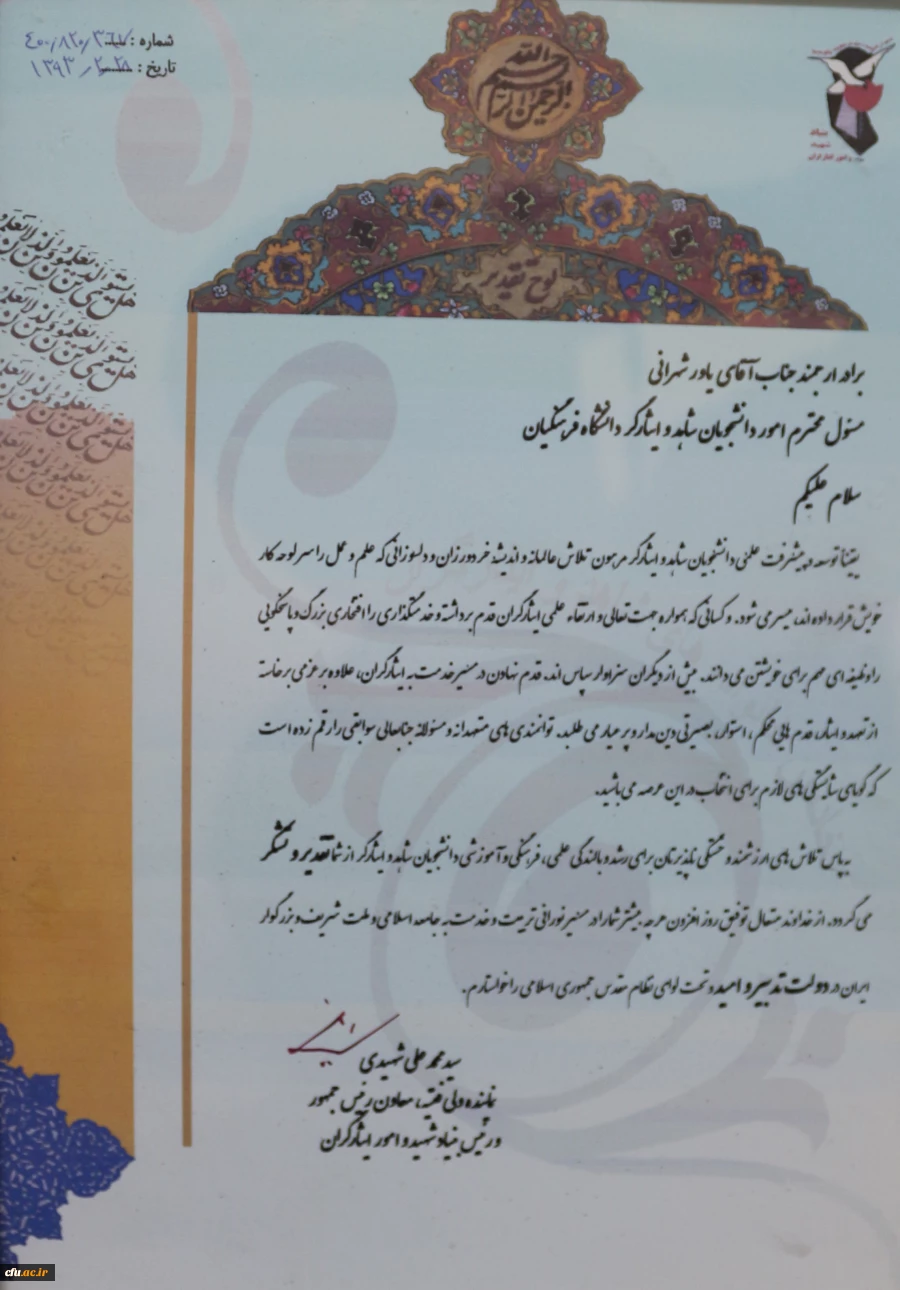 شماره : ۴۰۰/۸۲۰/۳۶۷
تاریخ : ۱۳۹۳/۲/۲۸
بسم الله الرحمن الرحیم
بنیاد
شهید
و امور ایثارگران
لوح تقدیر
هل یستوی الذین یعلمون و الذین لا یعلمون
برادر ارجمند جناب آقای یاور شهرانی
مسئول محترم امور دانشجویان شاهد و ایثارگر دانشگاه فرهنگیان
سلام علیکم
یقیناً توسعه و پیشرفت علمی دانشجویان شاهد و ایثارگر مرهون تلاش عالمانه و اندیشه خردورزان و دلسوزانی که علم و عمل را سرلوحه کار
خویش قرار داده اند، میسر می شود. و کسانی که همواره جهت تعالی و ارتقاء علمی ایثارگران قدم برداشته و خدمتگذاری را افتخاری بزرگ و پاسخگویی
را وظیفه ای مهم برای خویشتن می دانند. بیش از دیگران سزاوار سپاس اند. قدم نهادن در مسیر خدمت به ایثارگران، علاوه بر عزمی برخاسته
از تعهد و ایثار، قدم هایی محکم، استوار، بصیرتی دین مدار و پر عیار می طلبد. توانمندی های متعهدانه و مسئولانه جنابعالی سوابقی را رقم زده است
که گویای شایستگی های لازم برای انتخاب در این عرصه می باشید.
به پاس تلاش های ارزشمند و خستگی ناپذیرتان برای رشد و بالندگی علمی، فرهنگی و آموزشی دانشجویان شاهد و ایثارگر از شما تقدیر و تشکر
می گردد. از خداوند متعال توفیق روز افزون هر چه بیشتر شما را در مسیر نورانی تربیت و خدمت به جامعه اسلامی و ملت شریف و بزرگوار
ایران در دولت تدبیر و امید و تحت لوای نظام مقدس جمهوری اسلامی را خواستارم.
سید محمد علی شهیدی
نماینده ولی فقیه، معاون رئیس جمهور
و رئیس بنیاد شهید و امور ایثارگران
cfu.ac.ir